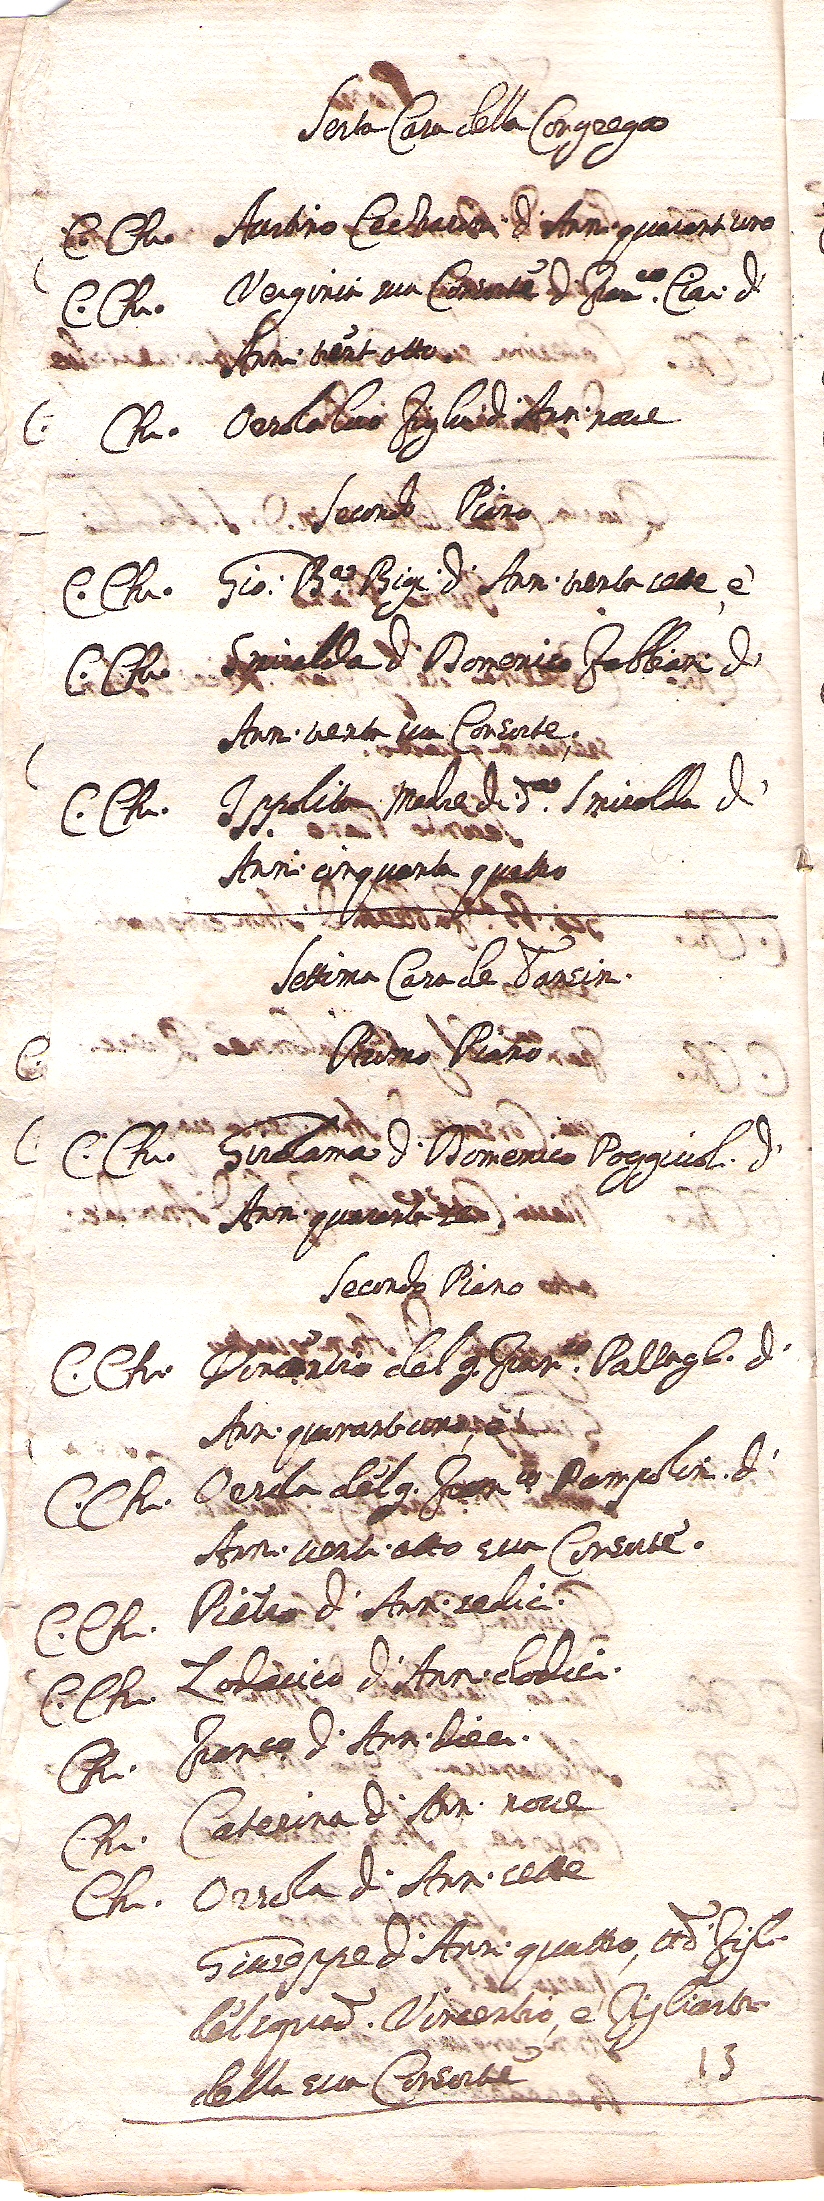 Sesta Casa della Congregao
C. Ch. Austino d' Ann. quarant'uno
C. Ch. Verginia sua Consorte d. Franco. Cia. d'
Ann. vent'otto
C. Ch. Orsola Figlia d' Ann. nove
Secondo Piano
C. Ch. Gio: Bta. Bigi d' Ann. trenta sette, e
C. Ch. Smiralda d. Domenico Fabbiani d'
Ann. trenta sua Consorte,
C. Ch. Ippolita Madre di da. Smiralda d'
Anni cinquanta quattro
Settima Casa de Tansin.
Primo Piano
C. Ch. Girolama d. Domenico Poggiuol. d'
Ann. quaranta
Secondo Piano
C. Ch. Vincentio del q. Franco. Pallagl. d'
Ann. quarant'uno, e
C. Ch. Orsola del q. Franco Pampolin. d'
Ann. vent'otto sua Consorte.
C. Ch. Pietro d' Ann. sedici.
C. Ch. Lodovico d' Ann. dodici.
Ch. Franco d' Ann. dieci.
Ch. Caterina d' Ann. nove
Ch. Orsola d' Ann. sette
Giuseppe d' Ann. quattro, Figl.
del Vincentio, e Figliastri
della sua Consorte 13